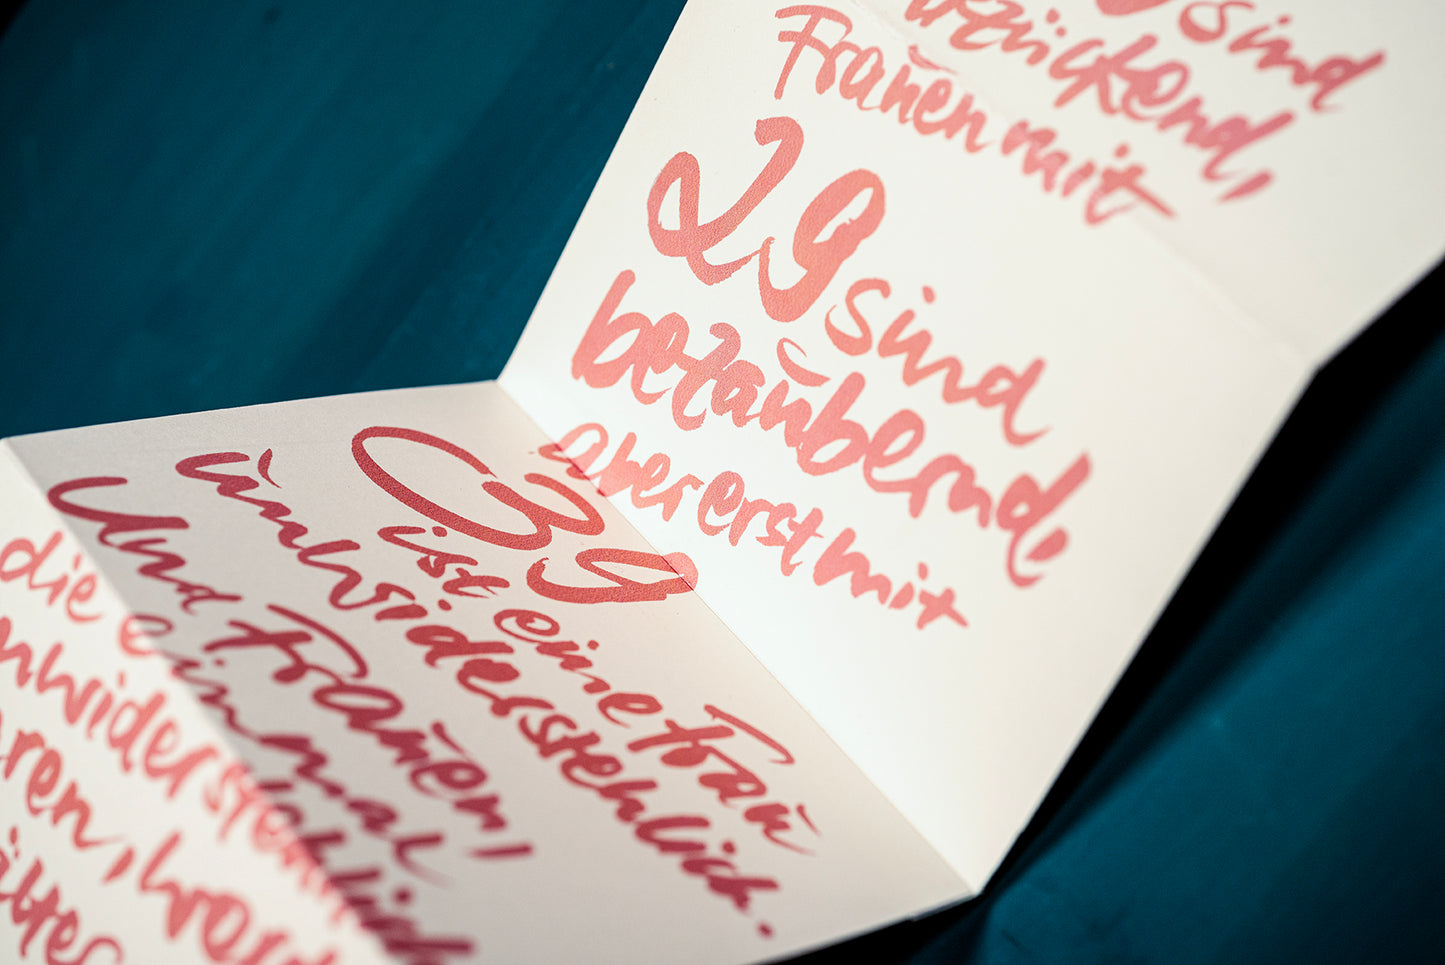 sind
zückend,
Frauen mit
29 sind
bezaubernd,
aber erst mit
39
ist eine Frau
unwiderstehlich.
Und Frauen,
die einmal
nwiderstehlich
ren,